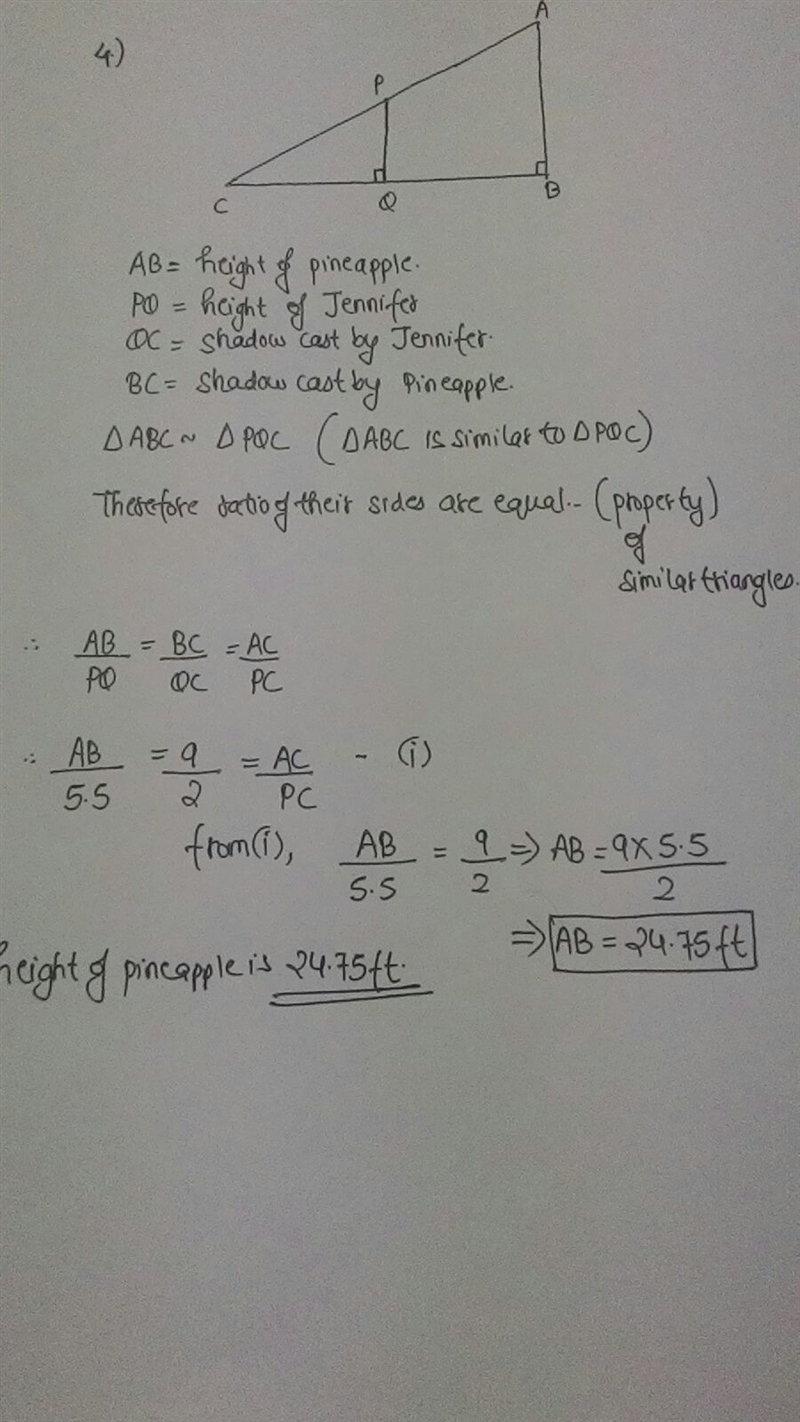 4.)
A
P
C
Q
B
AB = height of pineapple.
PQ = height of Jennifer
QC = shadow cast by Jennifer.
BC = shadow cast by Pineapple.
△ABC ~ △PQC (△ABC is similar to △PQC)
Therefore ratio of their sides are equal.- (property)
of
similar triangles.
∴ AB/PQ = BC/QC = AC/PC
∴ AB/5.5 = 9/2 = AC/PC - (i)
from (i), AB/5.5 = 9/2 ⇒ AB = 9×5.5/2
⇒ AB = 24.75 ft
height of pineapple is 24.75 ft.